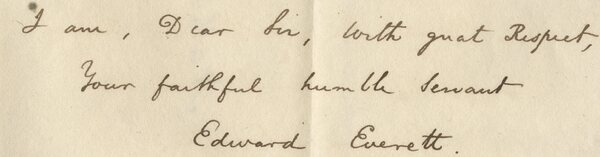 I am, Dear Sir, with great Respect,
Your faithful humble servant
Edward Everett.